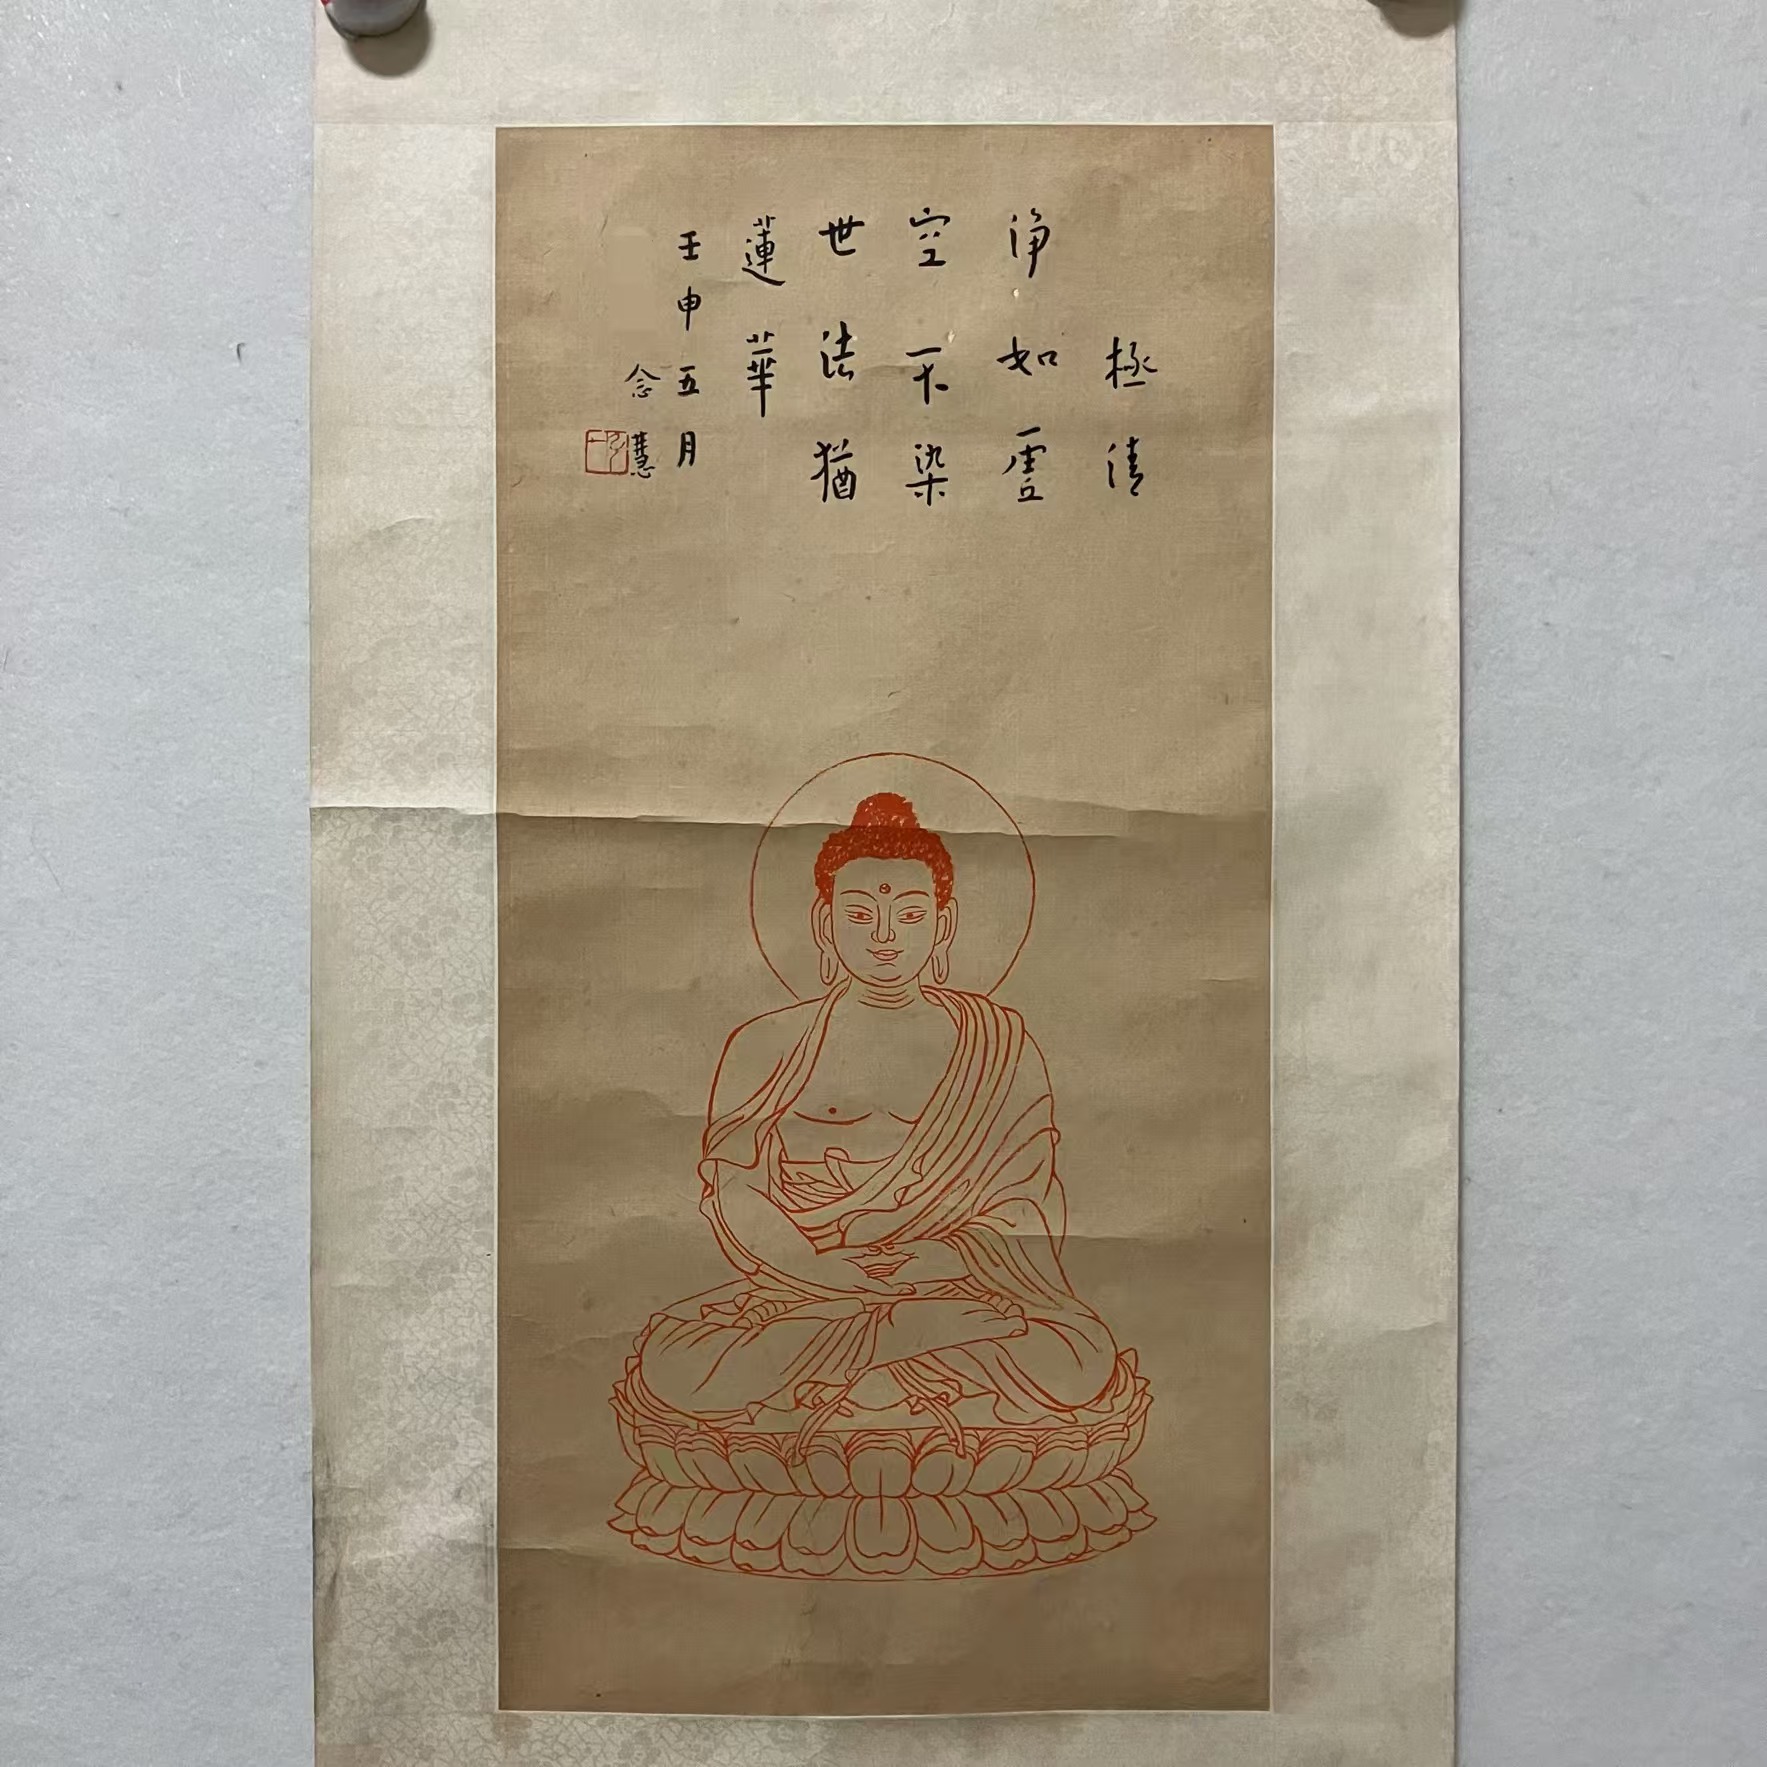 極清
淨如虛
空不染
世法猶
蓮華
壬申五月
念慧